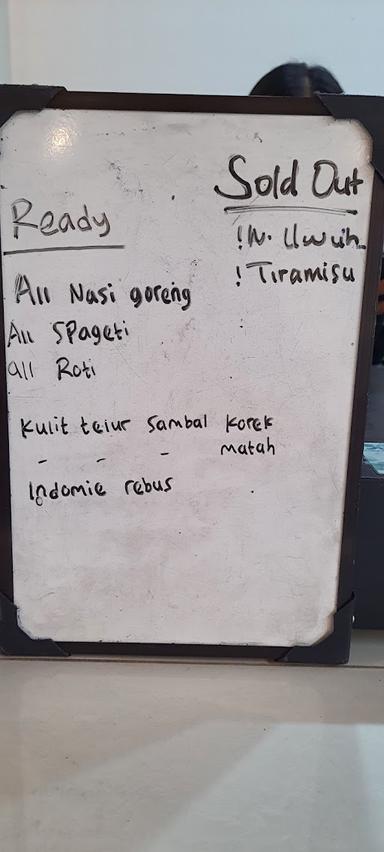 Ready
All Nasi goreng
All SPageti
all Roti
Kulit telur Sambal Korek
- - - matah
Indomie rebus
Sold Out
! W. Uwuh
! Tiramisu